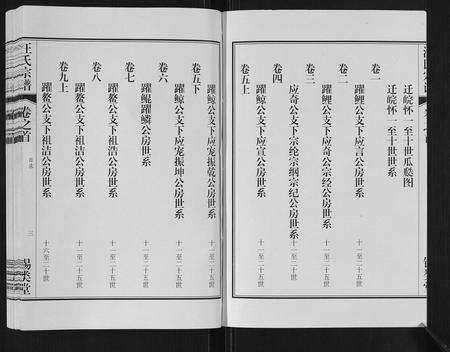 卷一
迁皖怀一至十世瓜瓞图
迁皖怀一至十世世系
卷二
躍鲤公支下应言公房世系 十一至二十五世
卷三
躍鲤公支下应奇公支下宗经公房世系 十一至二十五世
卷四
应奇公支下宗纶宗纲宗纪公房世系 十一至二十五世
卷五上
躍鲸公支下应宣公房世系 十一至二十五世
汪氏宗谱
卷之首
目录
三
锡类堂
卷五下
躍鲸公支下应宠振乾公房世系 十一至二十五世
卷六
躍鲸公支下应宠振坤公房世系 十一至二十五世
卷七
躍鲲躍鳞公房世系 十一至二十五世
卷八
躍鳌公支下祖洁公房世系 十一至二十五世
卷九上
躍鳌公支下祖洁公房世系 十六至二十世